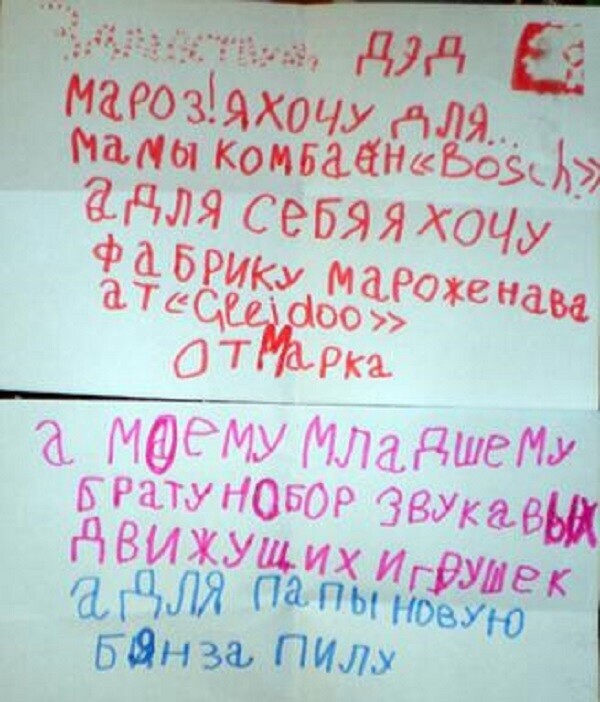 Здраствуй, дэд
мароз! я хочу для...
мамы комбаен «Bosch»
а для себя я хочу
фабрику мароженава
ат «Gleidoo»
от Марка
а маему младшему
брату нобор звукавых
движущих игрушек
а для папы новую
бянза пилу